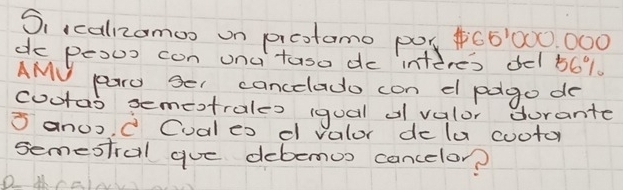 Si realizamos un prestamo por $65'000.000
de pesos con una tasa de interés del 36%
AMV para ser cancelado con el pago de
cuotas semestrales igual al valor durante
5 anos, ¿ Cual es el valor de la cuota
semestral que debemos cancelar?